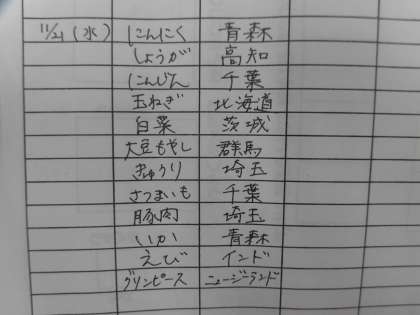 11/21(水) にんにく 青森
しょうが 高知
にんじん 千葉
玉ねぎ 北海道
白菜 茨城
大豆もやし 群馬
きゅうり 埼玉
さつまいも 千葉
豚肉 埼玉
いか 青森
えび インド
グリンピース ニュージーランド